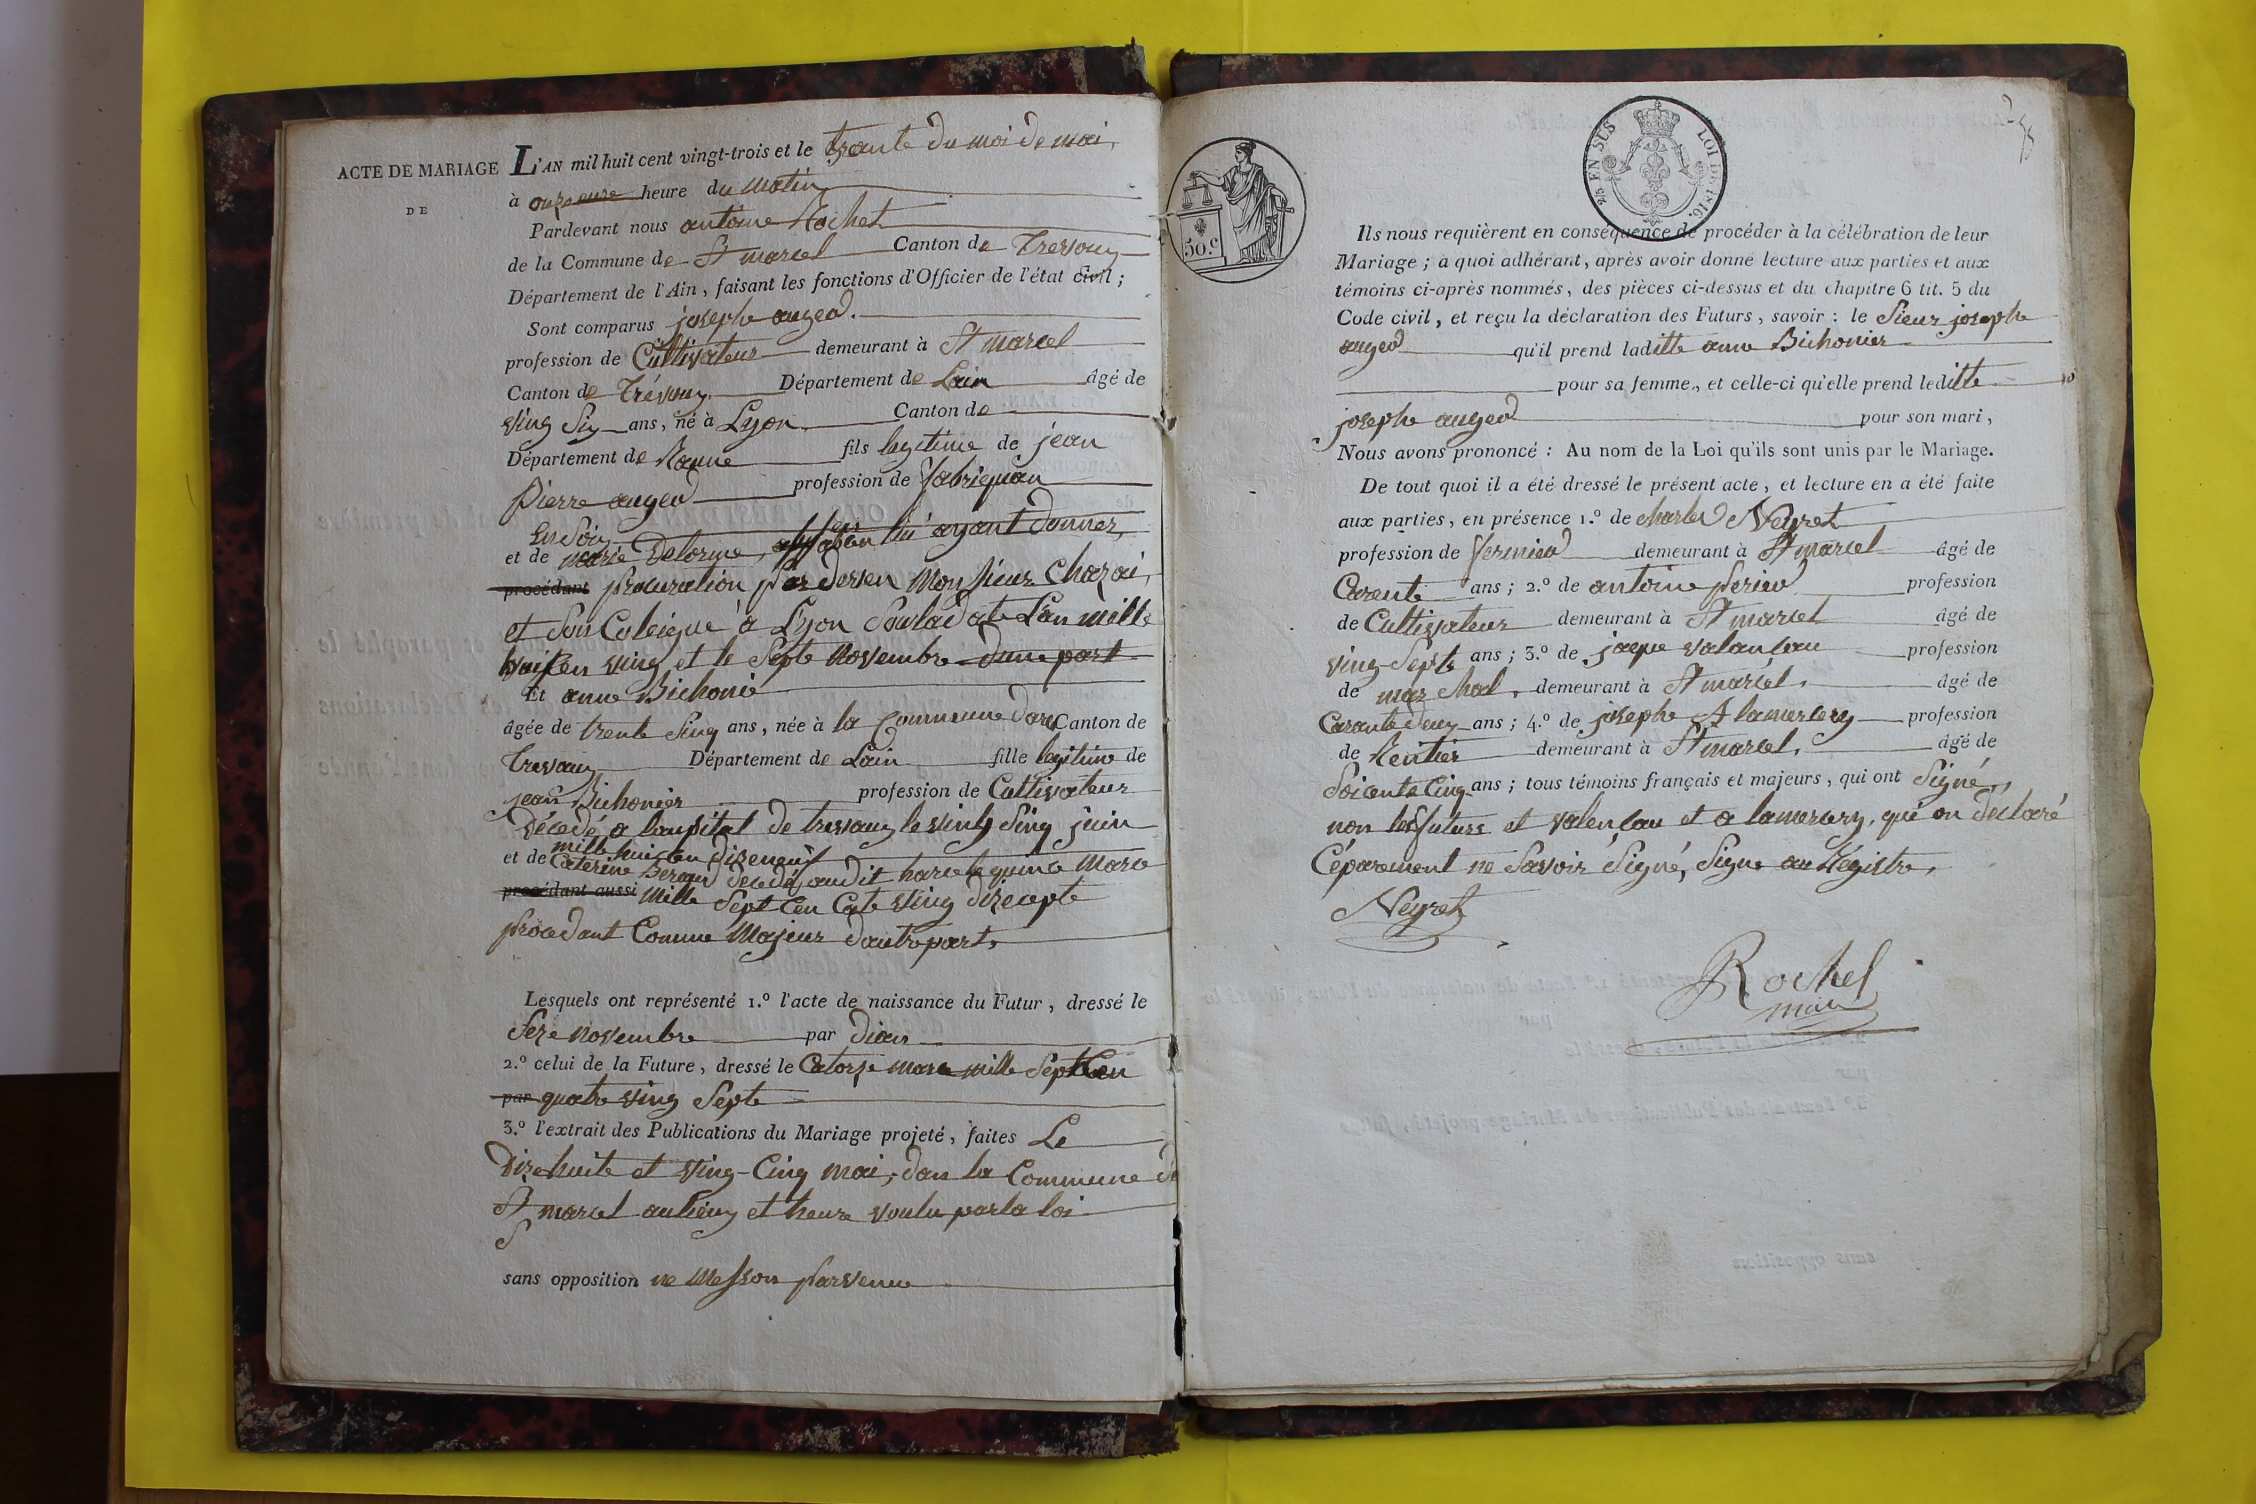 ACTE DE MARIAGE
DE
L'AN mil huit cent vingt-trois et le trante du moi de mai
à heure du matin
Pardevant nous antoine Rochet
de la Commune de St marcel Canton de Trevoux
Département de l'Ain, faisant les fonctions d'Officier de l'état civil ;
Sont comparus joseph auged
profession de Cultivateur demeurant à St marcel
Canton de Trévoux Département de Lain âgé de
ving Six ans, né à Lyon Canton de
Département de Raune fils legitime de jean
Pierre auged profession de fabriquan
en Soix
et de marie Delorme, lui ayant donner
procédant procuration par deven Monsieur Chazai
et Son Coleigue à Lyon Souladate Lan mille
huit Cen ving et le Septe Novembre dune part
Et anne Bichonié
âgée de trente Sinq ans, née à la Commune dars Canton de
Trevoux Département de Lain fille legitime de
jean Bichonier profession de Cultivateur
Décedé a laupital de trevoux le vint Sinq juin
mille huit Cen dizeneuf
et de Caterine Beroud decedé audit harce le quinze Marce
procédant aussi Mille Sept Cen Cate Ving dizesepte
procedant Comme Majeur dautrepart
Lesquels ont représenté 1.º l'acte de naissance du Futur, dressé le
Seze novembre par dian
2.º celui de la Future, dressé le Catorze marce mille Sept Cen
par quatre ving Septe
3.º l'extrait des Publications du Mariage projeté, faites Le
Dizehuite et Ving-Cinq mai, dans la Commune de
St marcel aulieux et heure voulu par la loi
sans opposition ne Messon parvenue
50.c
2.es EN SUS LOI DE 1816.
Ils nous requièrent en conséquence de procéder à la célébration de leur
Mariage ; à quoi adhérant, après avoir donné lecture aux parties et aux
témoins ci-après nommés, des pièces ci-dessus et du chapitre 6 tit. 5 du
Code civil, et reçu la déclaration des Futurs, savoir : le Sieur joseph
auged qu'il prend laditte anne Bichonier
pour sa femme, et celle-ci qu'elle prend leditte
joseph auged pour son mari,
Nous avons prononcé : Au nom de la Loi qu'ils sont unis par le Mariage.
De tout quoi il a été dressé le présent acte, et lecture en a été faite
aux parties, en présence 1.º de charles Neyret
profession de fermier demeurant à St marcel âgé de
Carente ans ; 2.º de antoine perier profession
de Cultivateur demeurant à St marcel âgé de
ving-Septe ans ; 3.º de jaque valancau profession
de marechal demeurant à St marcel. âgé de
Carante deux ans ; 4.º de joseph A lamercery profession
de Rentier demeurant à St marcel. âgé de
Soicente Cinq ans ; tous témoins français et majeurs, qui ont Signé,
non les future et valencau et a lamercery, qui on déclaré
Céparement ne Savoir Signé, Signe au Régistre,
Neyret
Rochet
maire